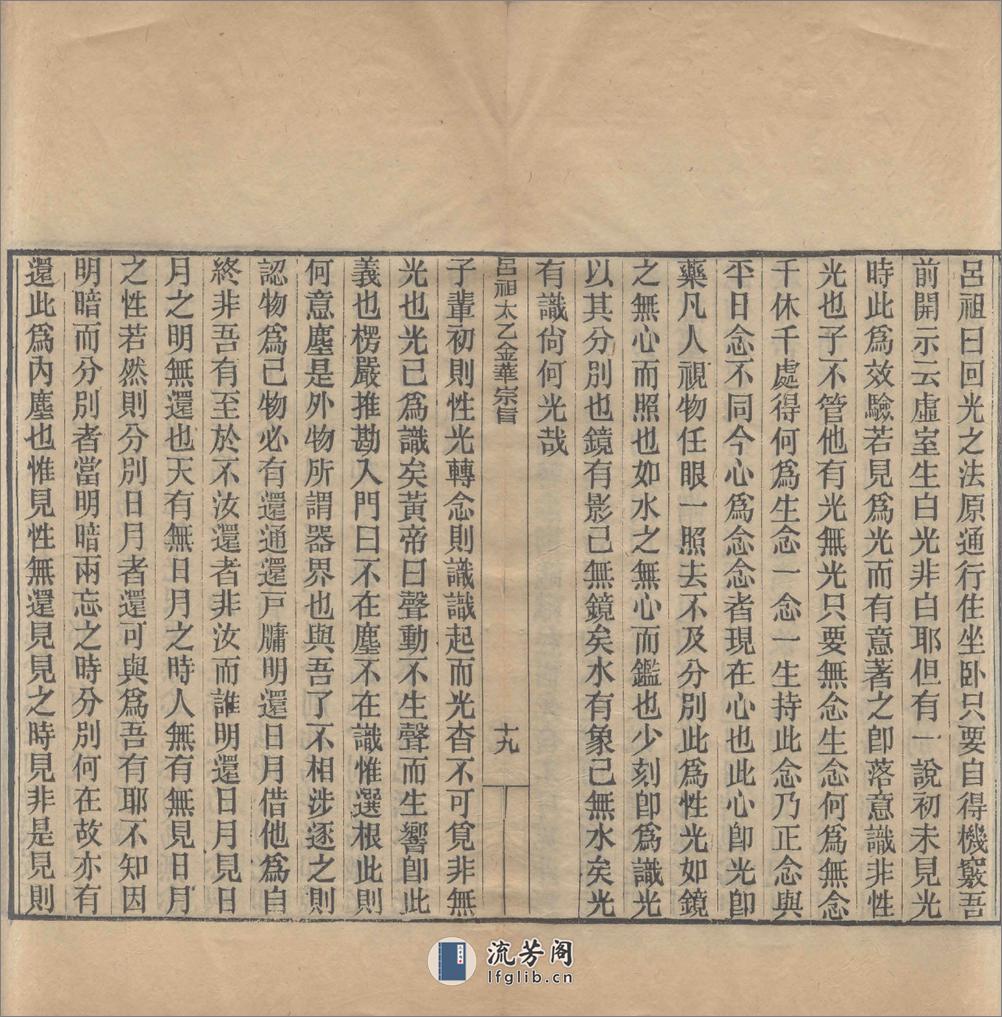 呂祖曰回光之法原通行住坐卧只要自得機竅吾
前開示云虛室生白光非白耶但有一說初未見光
時此爲效驗若見爲光而有意著之卽落意識非性
光也子不管他有光無光只要無念生念何爲無念
千休千處得何爲生念一念一生持此念乃正念與
平日念不同今心爲念念者現在心也此心卽光卽
藥凡人視物任眼一照去不及分別此爲性光如鏡
之無心而照也如水之無心而鑑也少刻卽爲識光
以其分別也鏡有影已無鏡矣水有象已無水矣光
有識尙何光哉
呂祖太乙金華宗旨
十九
子輩初則性光轉念則識識起而光杳不可覓非無
光也光已爲識矣黃帝曰聲動不生聲而生響卽此
義也楞嚴推勘入門曰不在塵不在識惟選根此則
何意塵是外物所謂器界也與吾了不相涉逐之則
認物爲己物必有還通還戸牖明還日月借他爲自
終非吾有至於不汝還者非汝而誰明還日月見日
月之明無還也天有無日月之時人無有無見日月
之性若然則分別日月者還可與爲吾有耶不知因
明暗而分別者當明暗兩忘之時分別何在故亦有
還此爲內塵也惟見性無還見見之時見非是見則
流芳阁
lfglib.cn